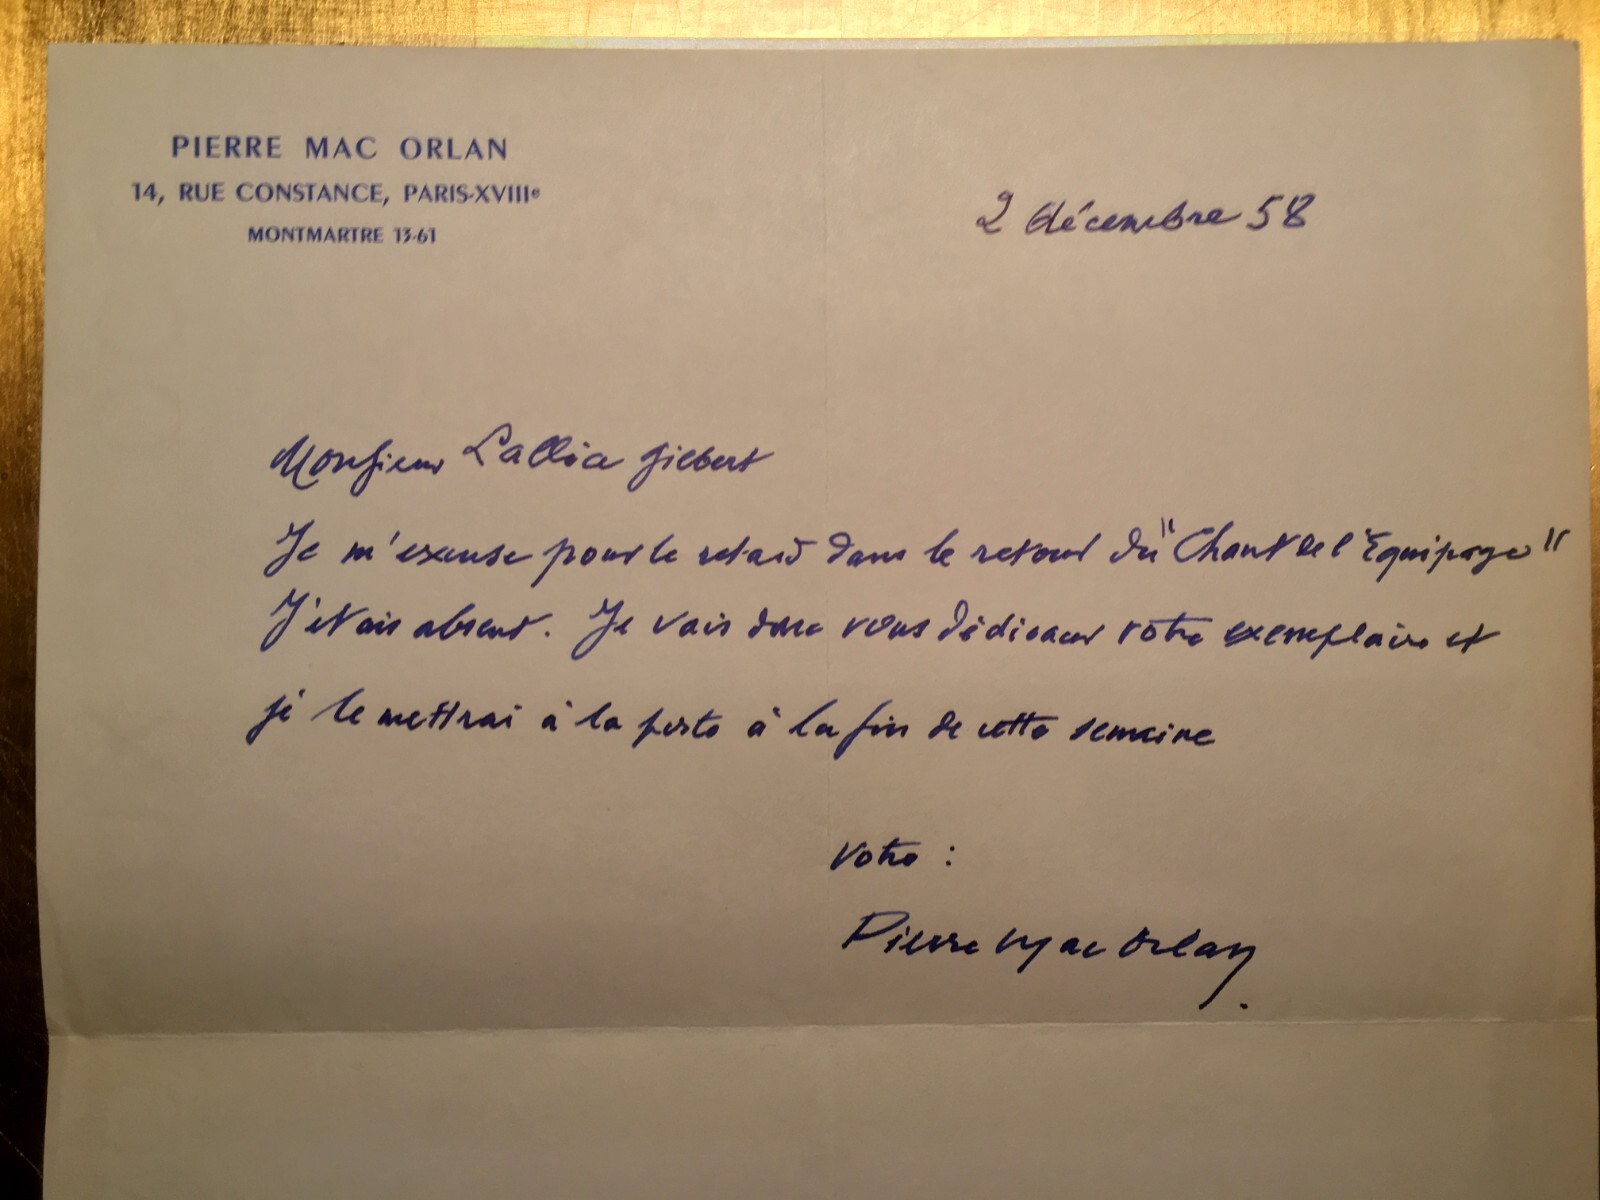 PIERRE MAC ORLAN
14, RUE CONSTANCE, PARIS-XVIIIe
MONTMARTRE 13-61
2 décembre 58
Monsieur Gilbert
Je m'excuse pour le retard dans le retour du "Chant de l'Equipage"
J'étais absent. Je vais donc vous dédicacer votre exemplaire et
je le mettrai à la poste à la fin de cette semaine
votre :
Pierre Mac Orlan